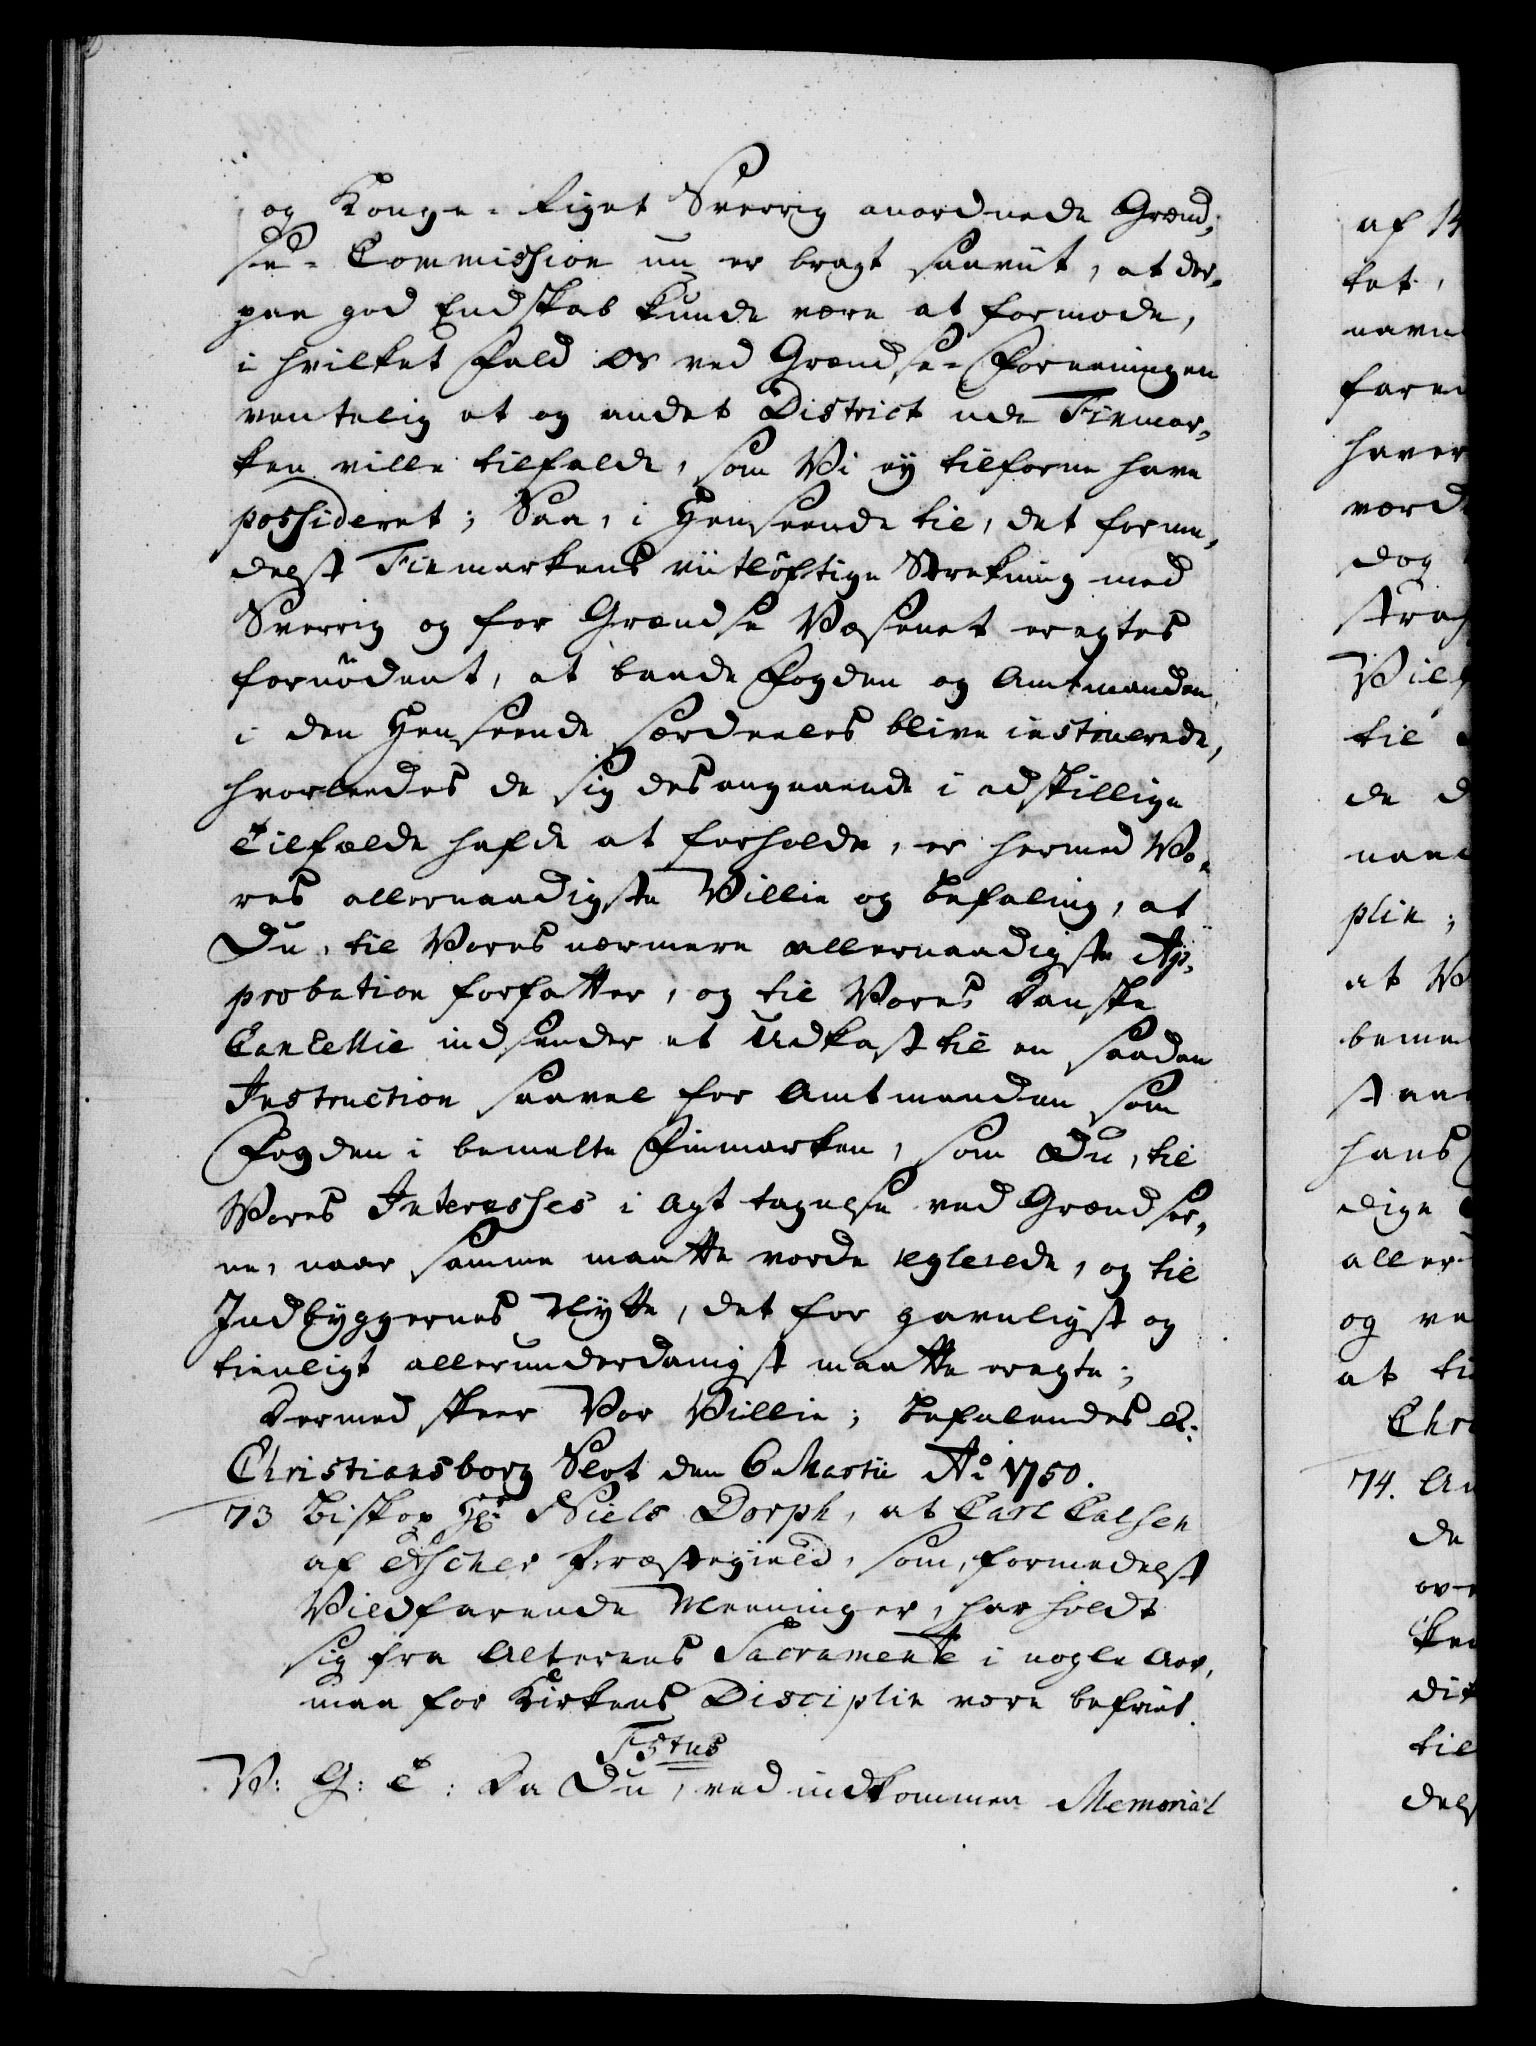 og Konge-Riget Sverrig anordnede Grænd-
se-Commission nu er bragt saaviit, at der-
paa god Endskab kunde være at formode,
i hvilket Fald Os ved Grændse-Foreeningen
ventelig et og andet District ude Finmar-
ken ville tilfalde, som Vi ey tilforne have
possideret; Saa, i Henseende til, det forme-
delst Finmarkens viitlöftige Strekning med
Sverrig og for Grændse Væsenet eragtes
fornödent, at baade Fogden og Amtmanden
i den Henseende særdeeles blive instruerede,
hvorleedes de sig desangaaende i adskillige
Tilfælde hafde at forholde, er hermed Vo-
res allernaadigste Villie og Befaling, at
Du, til Vores nærmere allernaadigste Ap-
probation forfatter, og til Vores Danske
Cancellie indsender et Udkast til en saadan
Instruction saavel for Amtmanden som
Fogden i bemelte Finmarken, som Du, til
Vores Interesses i agt tagelse ved Grændser-
ne, naar samme maatte vorde reglerede, og til
Indbyggernes Nytte, det for gavnligst og
tienligt allerunderdanigst maatte eragte;
Dermed skeer Vor Villie; Befalendes &c:
Christiansborg Slot den 6 Martii Ao 1750.
73 Biskop Hr: Niels Dorph, at Carl Calsen
af Ascher Præstegield, som, formedelst
Vildfarende Meeninger, har holdt
sig fra Alterens Sacramente i nogle Aar,
maa for Kirkens Disciplin være befriet.
F5tus
V: G: T: Da Du, ved indkommen Memorial
af
ket,
navn
haver
dog
til
de d
plin;
at V
hans
dige
aller
og ve
at ti
Chri
74.
de
til